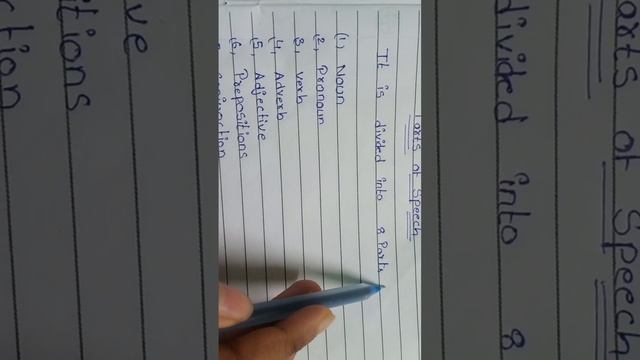 Parts of Speech
It is divided into 8 Parts
(1, Noun
(2, Pronoun
(3, Verb
(4, Adverb
(5, Adjective
(6, Prepositions